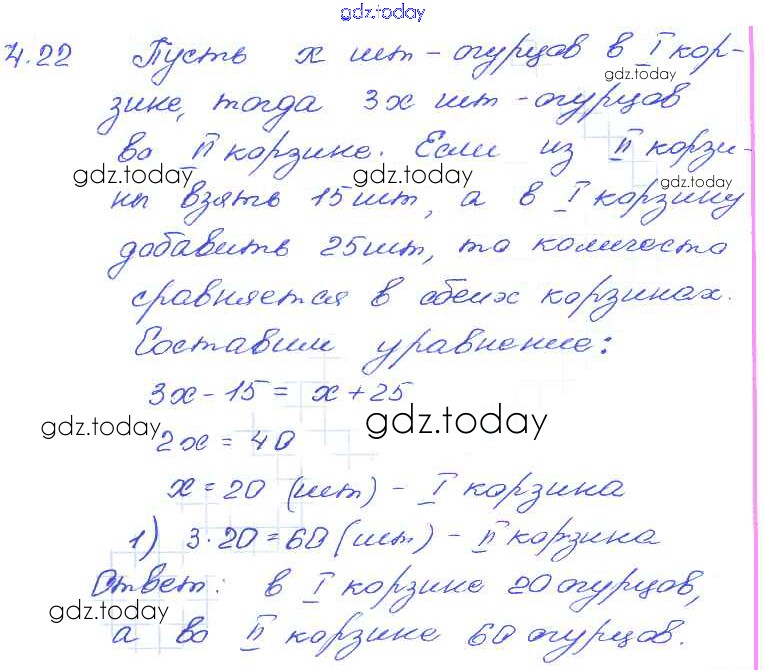 gdz.today
4.22 Пусть x шт - огурцов в I кор-
gdz.today
зине, тогда 3x шт - огурцов
во II корзине. Если из II корзи-
gdz.today gdz.today gdz.today
ны взять 15 шт, а в I корзину
добавить 25 шт, то количесто
сравняется в обеих корзинах.
Составим уравнение:
3x - 15 = x + 25
gdz.today gdz.today
2x = 40
x = 20 (шт) - I корзина
1) 3·20 = 60 (шт) - II корзина
Ответ: в I корзине 20 огурцов,
gdz.today
а во II корзине 60 огурцов.